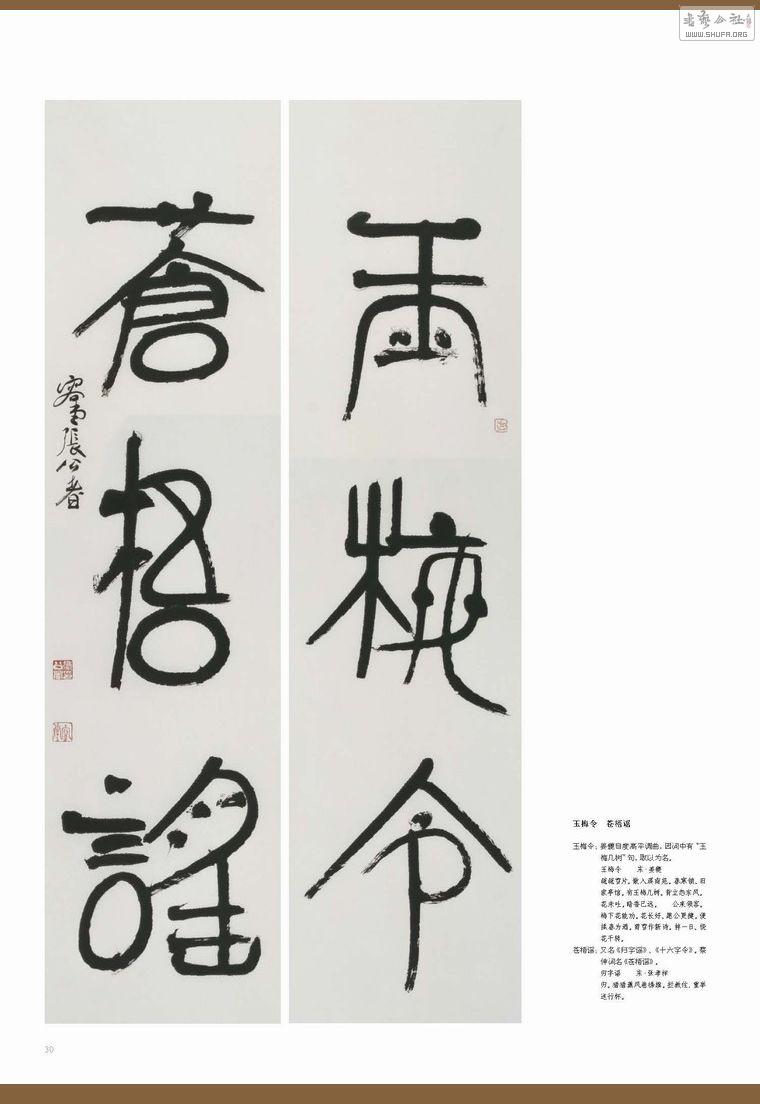 书艺公社
WWW.SHUFA.ORG
玉梅令
蒼梧謠
張公者
玉梅令 苍梧谣
玉梅令：姜夔自度高平调曲。因词中有“玉
梅几树”句，取以为名。
玉梅令 宋·姜夔
疏疏雪片。散入溪南苑。春寒锁、旧
家亭馆。有玉梅几树，背立怨东风，
花未吐，暗香已远。 公来领客，
梅下花能劝。花长好、愿公更健。便
揉春为酒，剪雪作新诗，拚一日、绕
花千转。
苍梧谣：又名《归字谣》、《十六字令》。蔡
伸词名《苍梧谣》。
归字谣 宋·张孝祥
归。猎猎薰风卷绣旗。拦教住，重举
送行杯。
30